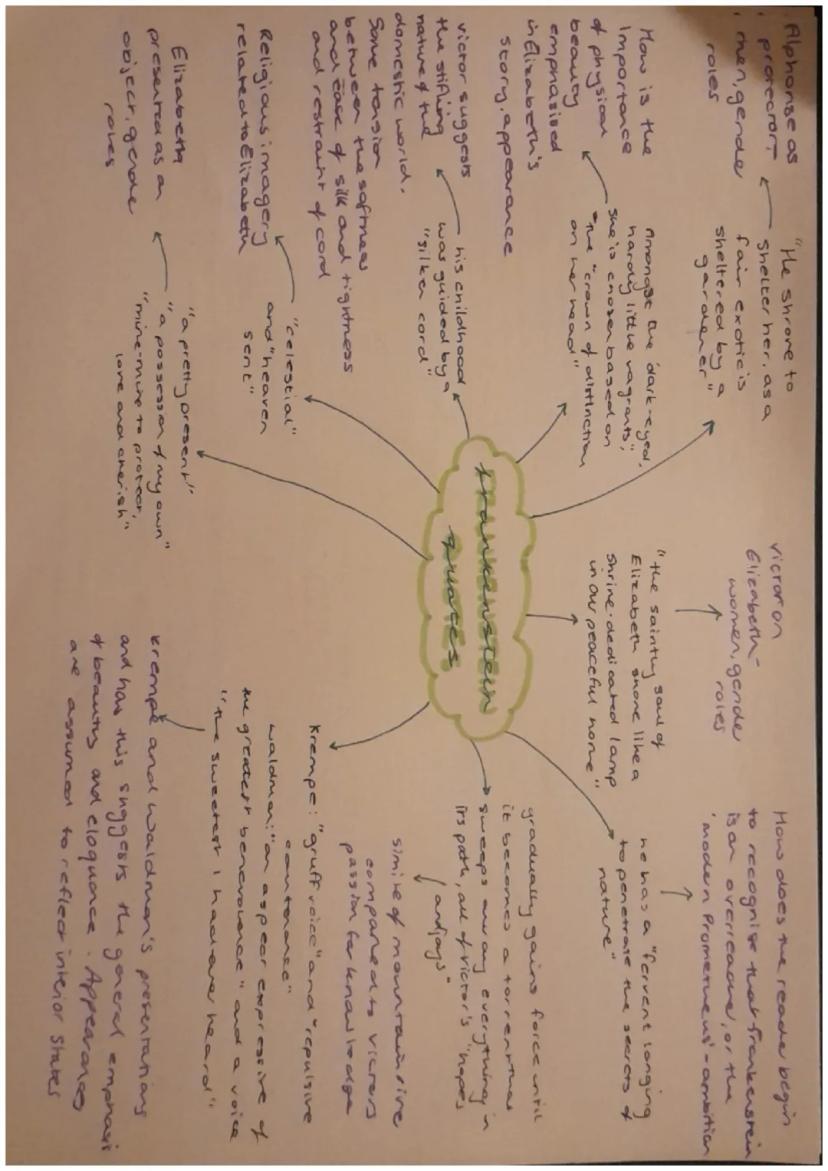 Frankenstein
quotes
Alphonse as
protector,
men, gender
roles
"He strove to
shelter her, as a
fair exotic is
sheltered by a
gardener"
How is the
importance
of physical
beauty
emphasised
in Elizabeth's
story, appearance
Amongst the 'dark-eyed,
hardy little vagrants',
she is chosen based on
the "crown of distinction
on her head"
victor suggests
the stifling
nature of the
domestic world.
Some tension
between the softness
and ease of silk and tightness
and restraint of cord
his childhood
was guided by a
"silken cord"
Religious imagery
related to Elizabeth
"celestial"
and "heaven
sent"
Elizabeth
presented as an
object, gender
roles
"a pretty present"
"a possession of my own"
"mine-mine to protect,
love and cherish"
victor on
Elizabeth-
women, gender
roles
"the saintly soul of
Elizabeth shone like a
shrine-dedicated lamp
in our peaceful home"
How does the reader begin
to recognise that frankenstein
is an overreacher, or the
'modern Prometheus' - ambition
he has a "fervent longing
to penetrate the secrets of
nature"
gradually gains force until
it becomes a torrent that
sweeps away everything in
its path, all of victor's "hopes
and joys"
simile of mountain
compared to victors
passion for knowledge
Krempe: "gruff voice" and "repulsive
countenance"
waldman: "an aspect expressive of
the greatest benevolence" and a voice
"the sweetest I had ever heard"
krempe and waldman's presentations
and how this suggests the general emphasis
of beauty and eloquence. Appearances
are assumed to reflect interior states